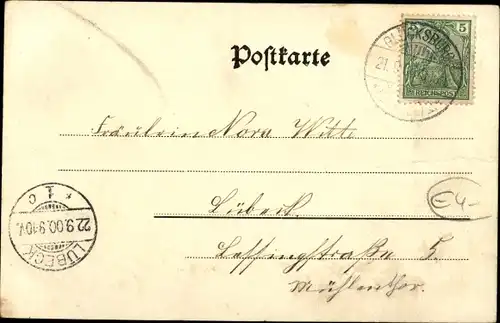 GLÜCKSBURG
21.9
5
REICHSPOST
Postkarte
Fräulein Nora Witte
Lübeck
Lessingstraße 5.
Mühlenthor.
E4-
LÜBECK
22.9.00.9-10V.
* 1 c